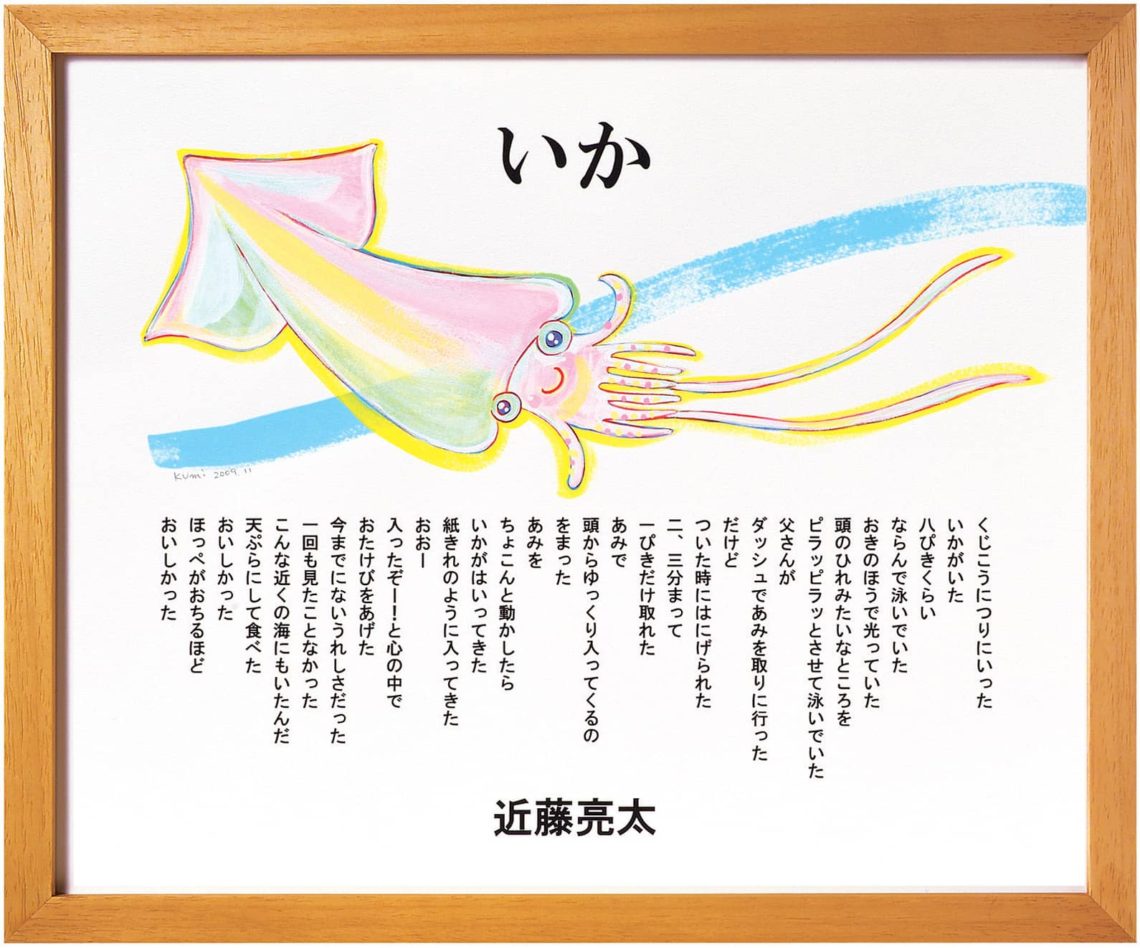 いか
Kumi 2009.11
くじこうにつりにいった
いかがいた
八ぴきくらい
ならんで泳いでいた
おきのほうで光っていた
頭のひれみたいなところを
ピラッピラッとさせて泳いでいた
父さんが
ダッシュであみを取りに行った
だけど
ついた時にはにげられた
二、三分まって
一ぴきだけ取れた
あみで
頭からゆっくり入ってくるの
をまった
あみを
ちょこんと動かしたら
いかがはいってきた
紙きれのように入ってきた
おおー
入ったぞー!と心の中で
おたけびをあげた
今までにないうれしさだった
一回も見たことなかった
こんな近くの海にもいたんだ
天ぷらにして食べた
おいしかった
ほっぺがおちるほど
おいしかった
近藤亮太